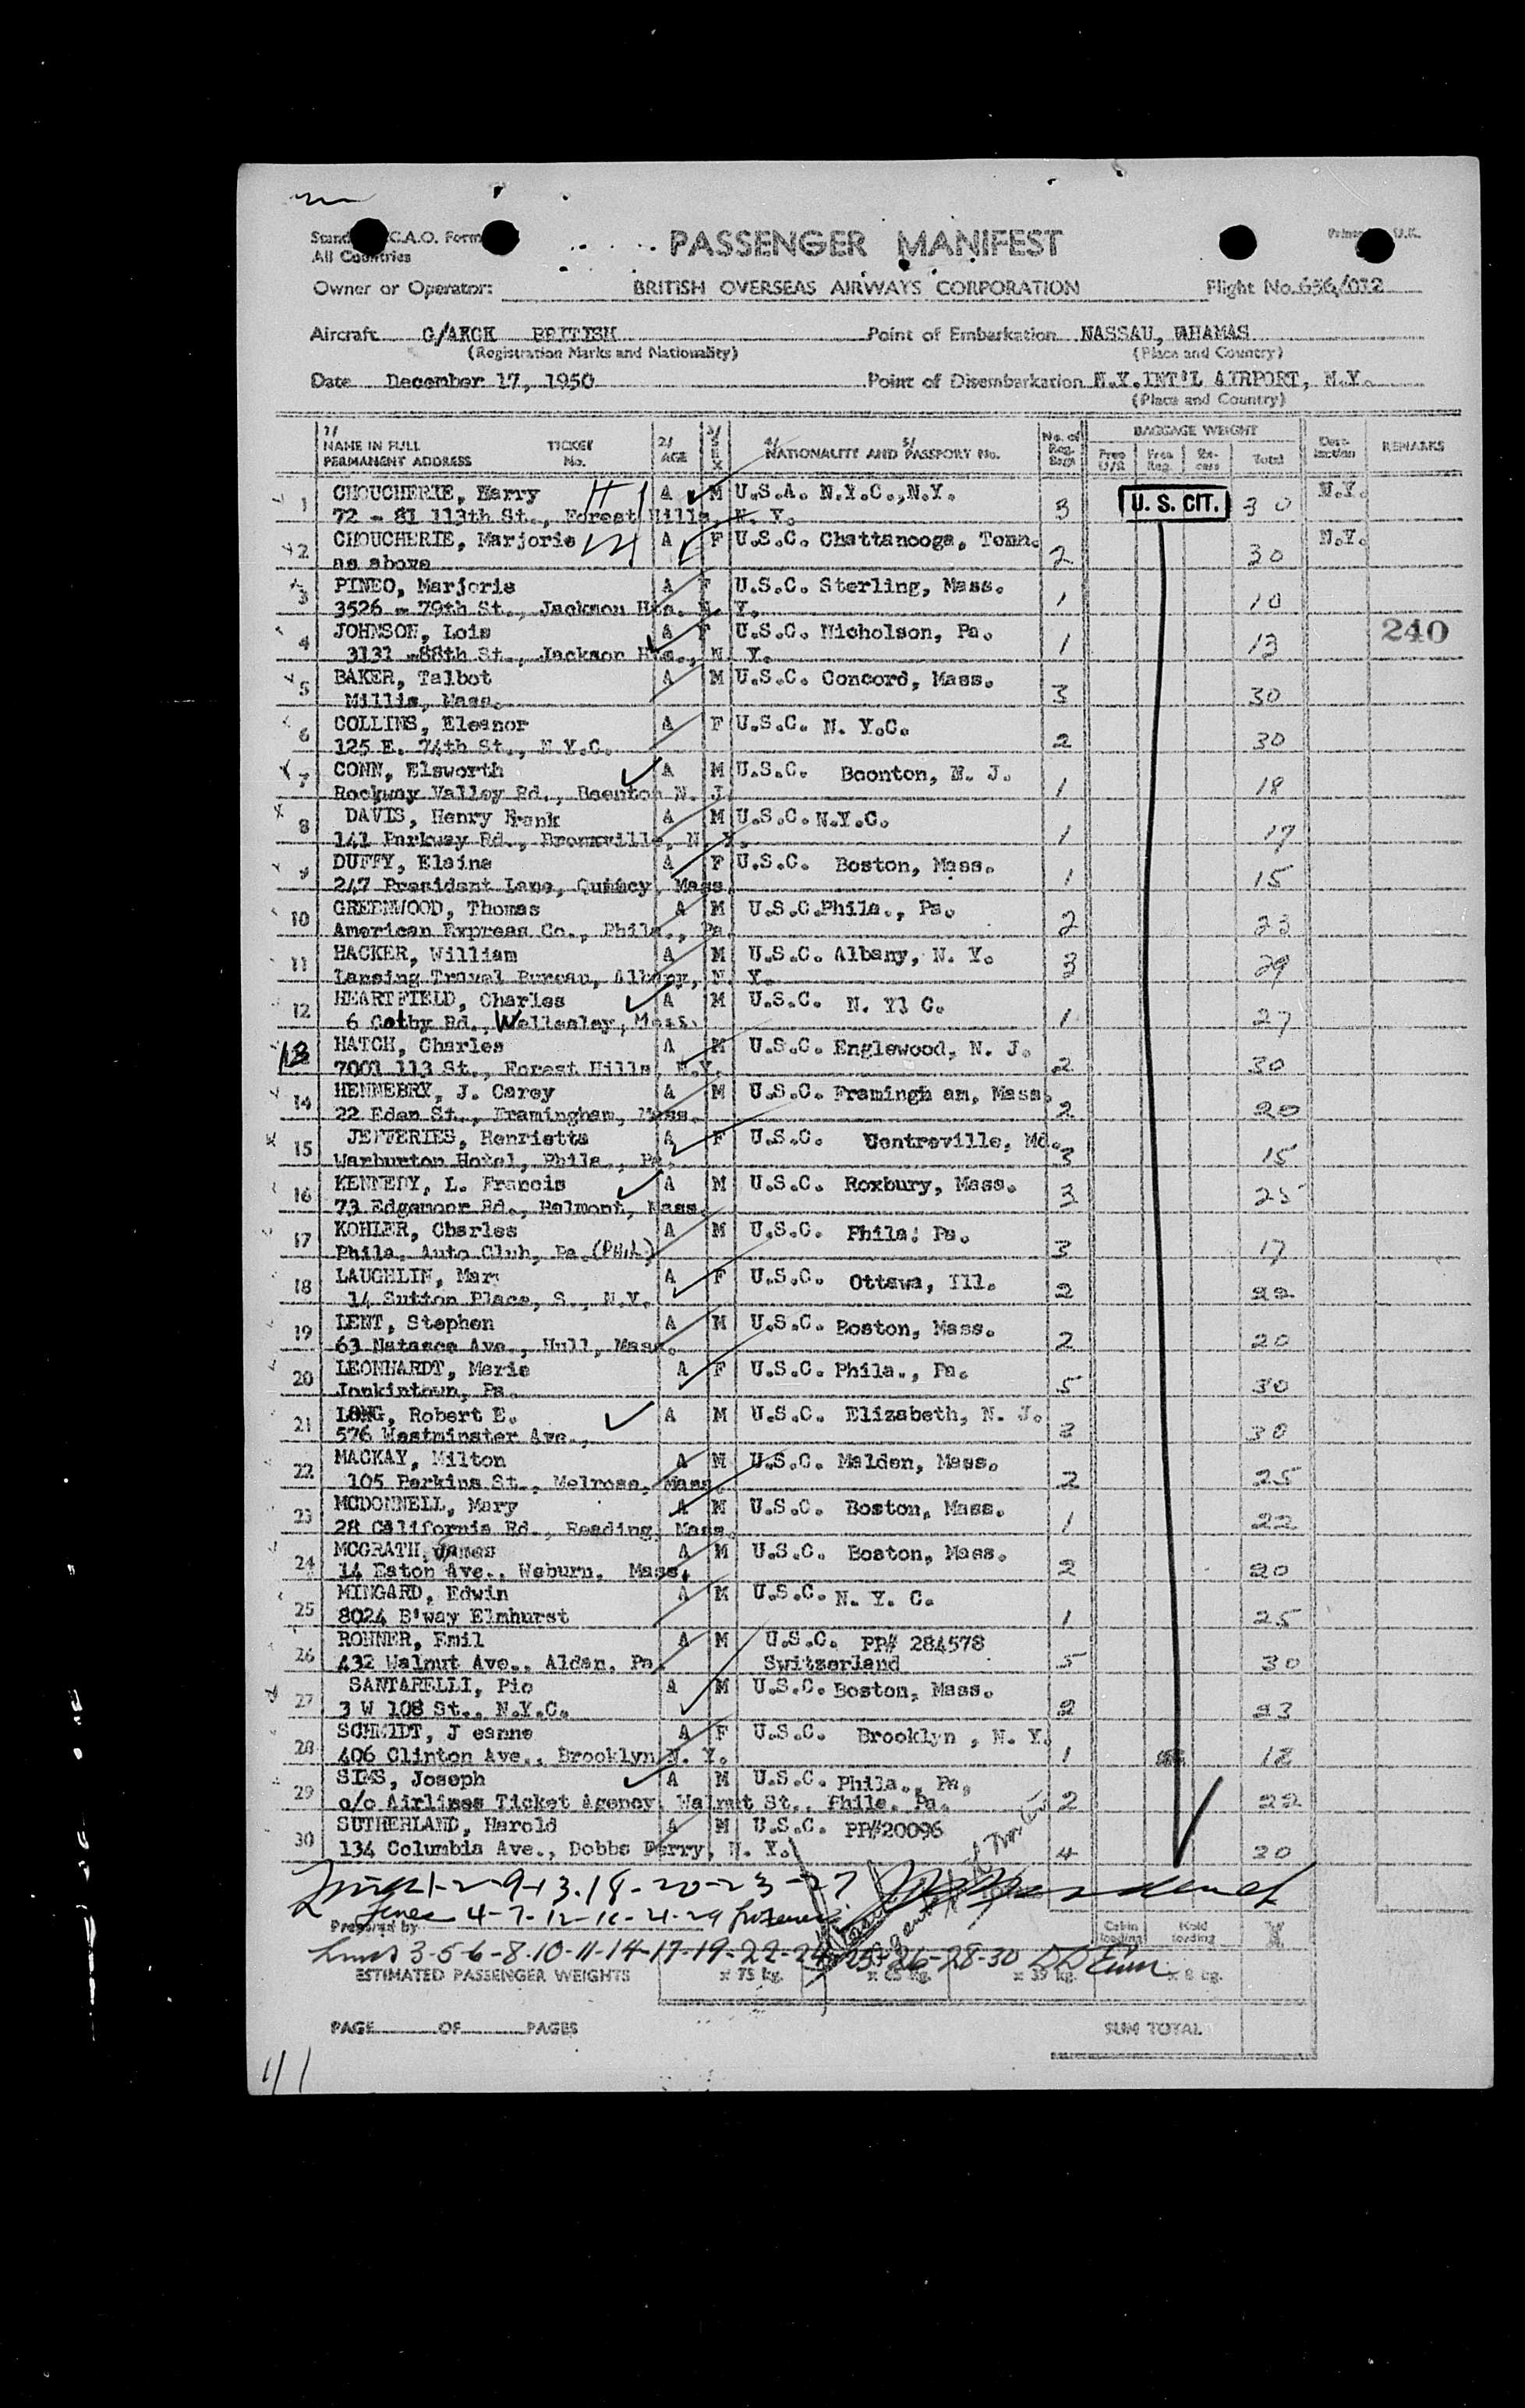 PASSENGER MANIFEST
All Countries
Owner or Operator: BRITISH OVERSEAS AIRWAYS CORPORATION Flight No.
Aircraft G/AKCK BRITISH Point of Embarkation NASSAU, BAHAMAS
(Registration Marks and Nationality) (Place and Country)
Date December 17, 1950 Point of Disembarkation N.Y. INT'L AIRPORT, N.Y.
(Place and Country)
1/ 2/ 3/ 4/ 5/ No. of BAGGAGE WEIGHT
NAME IN FULL TICKET AGE SEX NATIONALITY AND PASSPORT No. Total REMARKS
PERMANENT ADDRESS No.
1 CHOUCHERIE, Harry A M U.S.A. N.Y.C.,N.Y. 3 U. S. CIT. 30 N.Y.
72 - 81 113th St., Forest Hills, N.Y.
2 CHOUCHERIE, Marjorie A F U.S.C. Chattanooga, Tenn. 2 30 N.Y.
as above
3 PINEO, Marjorie A F U.S.C. Sterling, Mass. 1 10
3526 - 79th St., Jackson Hts. N. Y.
4 JOHNSON, Lois A F U.S.C. Nicholson, Pa. 1 13 240
3131 -88th St., Jackson Hts., N. Y.
5 BAKER, Talbot A M U.S.C. Concord, Mass. 3 30
Millis, Mass.
6 COLLINS, Eleanor A F U.S.C. N. Y.C. 2 30
125 E. 74th St., N.Y.C.
7 CONN, Elsworth A M U.S.C. Boonton, N. J. 1 18
Rockway Valley Rd., Boonton N. J.
8 DAVIS, Henry Frank A M U.S.C. N.Y.C. 1 17
141 Parkway Rd., Bronxville, N. Y.
9 DUFFY, Elaine A F U.S.C. Boston, Mass. 1 15
247 President Lane, Quincy, Mass.
10 GREENWOOD, Thomas A M U.S.C.Phila., Pa. 2 23
American Express Co., Phila., Pa.
11 HACKER, William A M U.S.C. Albany, N. Y. 3 29
Lansing Travel Bureau, Albany, N. Y.
12 HEARTFIELD, Charles A M U.S.C. N. Yl C. 1 27
6 Cathy Rd., Wellesley, Mass.
13 HATCH, Charles A M U.S.C. Englewood, N. J. 2 30
7001 113 St., Forest Hills, N.Y.
14 HENNEBRY, J. Carey A M U.S.C. Framingh am, Mass. 2 20
22 Eden St., Framingham, Mass.
15 JEFFERIES, Henrietta A F U.S.C. Centreville, Md. 3 15
Warburton Hotel, Phila., Pa.
16 KENNEDY, L. Francis A M U.S.C. Roxbury, Mass. 3 25
73 Edgemoor Rd., Belmont, Mass.
17 KOHLER, Charles A M U.S.C. Phila: Pa. 3 17
Phila. Auto Club, Pa.
18 LAUGHLIN, Mary A F U.S.C. Ottawa, Ill. 2 22
14 Sutton Place, S., N.Y.
19 LENT, Stephen A M U.S.C. Boston, Mass. 2 20
63 Natasco Ave., Hull, Mass.
20 LEONHARDT, Marie A F U.S.C. Phila., Pa. 5 30
Jenkintown, Pa.
21 LONG, Robert E. A M U.S.C. Elizabeth, N. J. 2 30
576 Westminster Ave.,
22 MACKAY, Milton A M U.S.C. Malden, Mass. 2 25
105 Perkins St., Melrose, Mass.
23 MCDONNELL, Mary A M U.S.C. Boston, Mass. 1 22
28 California Rd., Reading, Mass.
24 MCGRATH, James A M U.S.C. Boston, Mass. 2 20
14 Eaton Ave., Woburn, Mass.
25 MINGARD, Edwin A M U.S.C. N. Y. C. 1 25
8024 B'way Elmhurst
26 ROHNER, Emil A M U.S.C. PP# 284578 5 30
432 Walnut Ave., Aldan, Pa. Switzerland
27 SANTARELLI, Pio A M U.S.C. Boston, Mass. 2 23
3 W 108 St., N.Y.C.
28 SCHMIDT, J eanne A F U.S.C. Brooklyn , N. Y. 1 18
406 Clinton Ave., Brooklyn N. Y.
29 SIMS, Joseph A M U.S.C. Phila., Pa. 2 22
c/o Airlines Ticket Agency, Walnut St., Phila. Pa.
30 SUTHERLAND, Harold A M U.S.C. PP#20096 4 20
134 Columbia Ave., Dobbs Ferry, N. Y.
1-2-9-13-18-20-23-27
4-7-12-16-21-29
Prepared by Cabin loading Hold loading
3-5-6-8-10-11-14-17-19-22-24-25-26-28-30
ESTIMATED PASSENGER WEIGHTS x 75 kg. x 65 kg. x 39 kg. x 8 kg.
PAGE OF PAGES SUM TOTAL